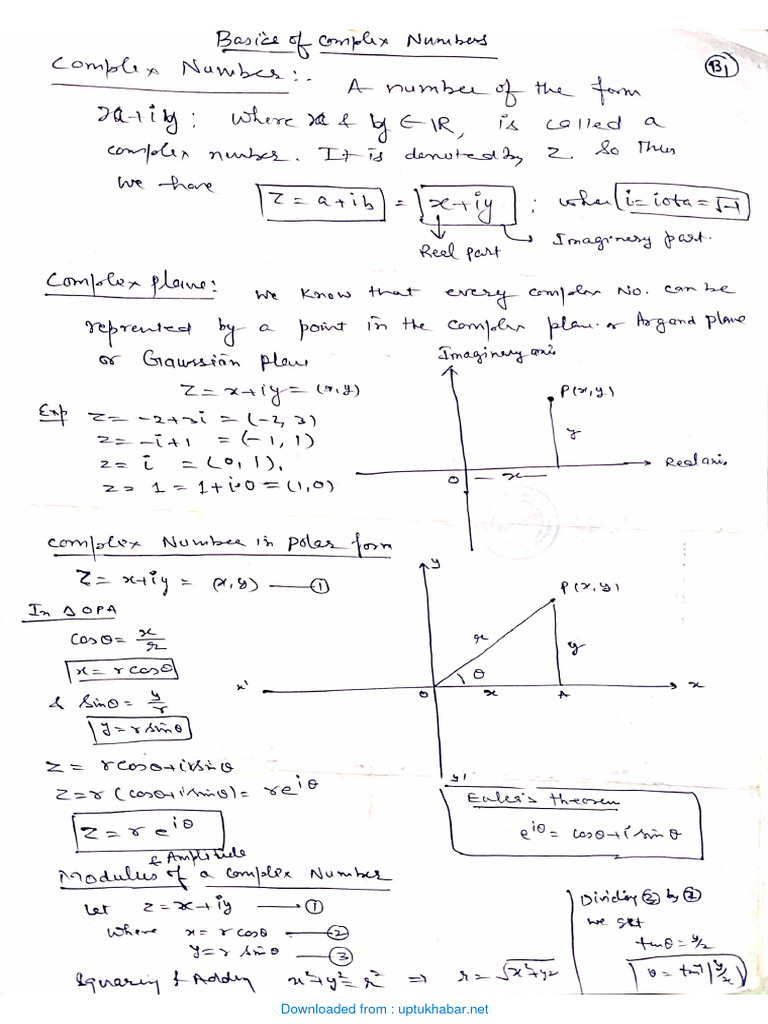 Basics of Complex Numbers
B1
Complex Number:-. A number of the form
x+iy; where x & y ∈ IR, is called a
complex number. It is denoted by z. So Thus
we have z = a+ib = x+iy ; where i = iota = √-1
Real part
Imaginery part.
Complex plane: we know that every complex No. can be
reprented by a point in the complex plan. or Argand plane
or Gaussian plane
z = x+iy = (x,y)
Exp z = -2+3i = (-2, 3)
z = -i+1 = (-1, 1)
z = i = (0, 1),
z = 1 = 1+i.0 = (1,0)
Imaginery axis
P(x,y)
y
O
x
Real axis
Complex Number in polar form
z = x+iy = (x,y) — ①
In Δ OPA
cosθ = x/r
x = r cosθ
& sinθ = y/r
y = r sinθ
z = r cosθ + i r sinθ
z = r (cosθ + i sinθ) = re^iθ
z = r e^iθ
y
P(x,y)
r
y
θ
x'
O
x
A
x
y'
Euler's theorem
e^iθ = cosθ + i sin θ
& Amplitude
Modulus of a complex Number
Let z = x+iy → ①
where x = r cosθ — ②
y = r sinθ — ③
Squaring & Adding x²+y² = r² ⇒ r = √x²+y²
Dividing ② by ②
we get
tanθ = y/x
θ = tan⁻¹|y/x|
Downloaded from : uptukhabar.net